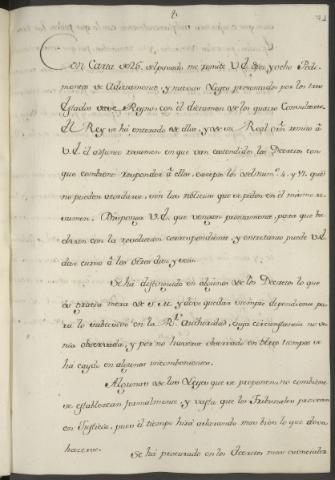 Con Carta de 26. del pasado me remite V.S. diez, y ocho Pedi-
mentos de Adicionamentos, y nuevas Leyes presentados por los tres
Estados de ese Reyno con el dictamen de los quatro Consultores.
El Rey se ha enterado de ellas, y de su Real orn remito à
V.S. el adjunto resumen en que van extendidos los Decretos con
que combiene responder à ellas, excepto los de los num.s 4. y 17. que
no pueden acordarse, sin las noticias que se piden en el mismo re-
sumen. Disponga V.S. que vengan prontamente, para que ha
de con la resolucion correspondiente, y entretanto puede V.S.
dar curso à los otros diez y seis.
Se ha distinguido en algunos de los Decretos lo que
es gracia mera de S.M. y deve quedar siempre dependiente pa-
ra lo subcesivo en la R.l authoridad, cuya circunstancia no se
observada, y por no haverse observado en otros tiempos se
ha caydo en algunos incombenientes.
Algunas de las Leyes que se proponen no combiene
se establezcan formalmente, y vasta que los Tribunales procedan
en Justicia, pues el tiempo hirá aclarando mas bien lo que deva
hacerse.
Se ha procurado en los Decretos mas esenciales